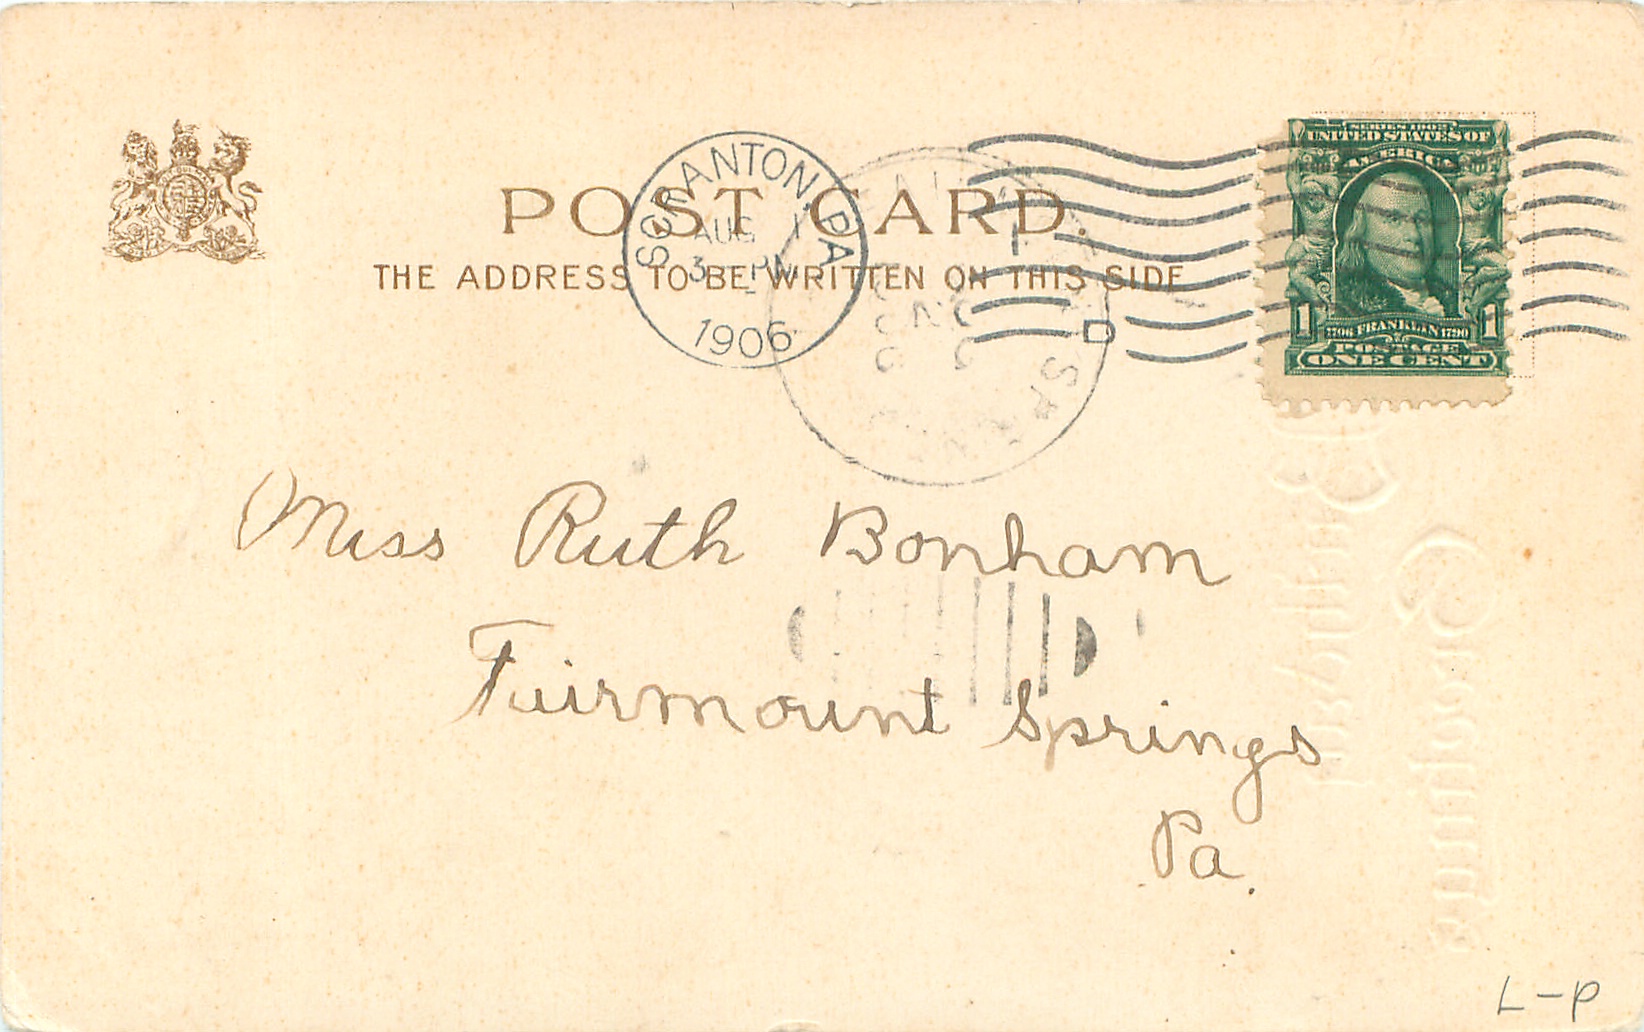 POST CARD.
THE ADDRESS TO BE WRITTEN ON THIS SIDE
SCRANTON, PA
AUG 1
3 - PM
1906
D
SERIES 1902
UNITED STATES OF
AMERICA
1 1706 FRANKLIN 1790 1
POSTAGE
ONE CENT
Miss Ruth Bonham
Fairmount Springs
Pa.
L-P